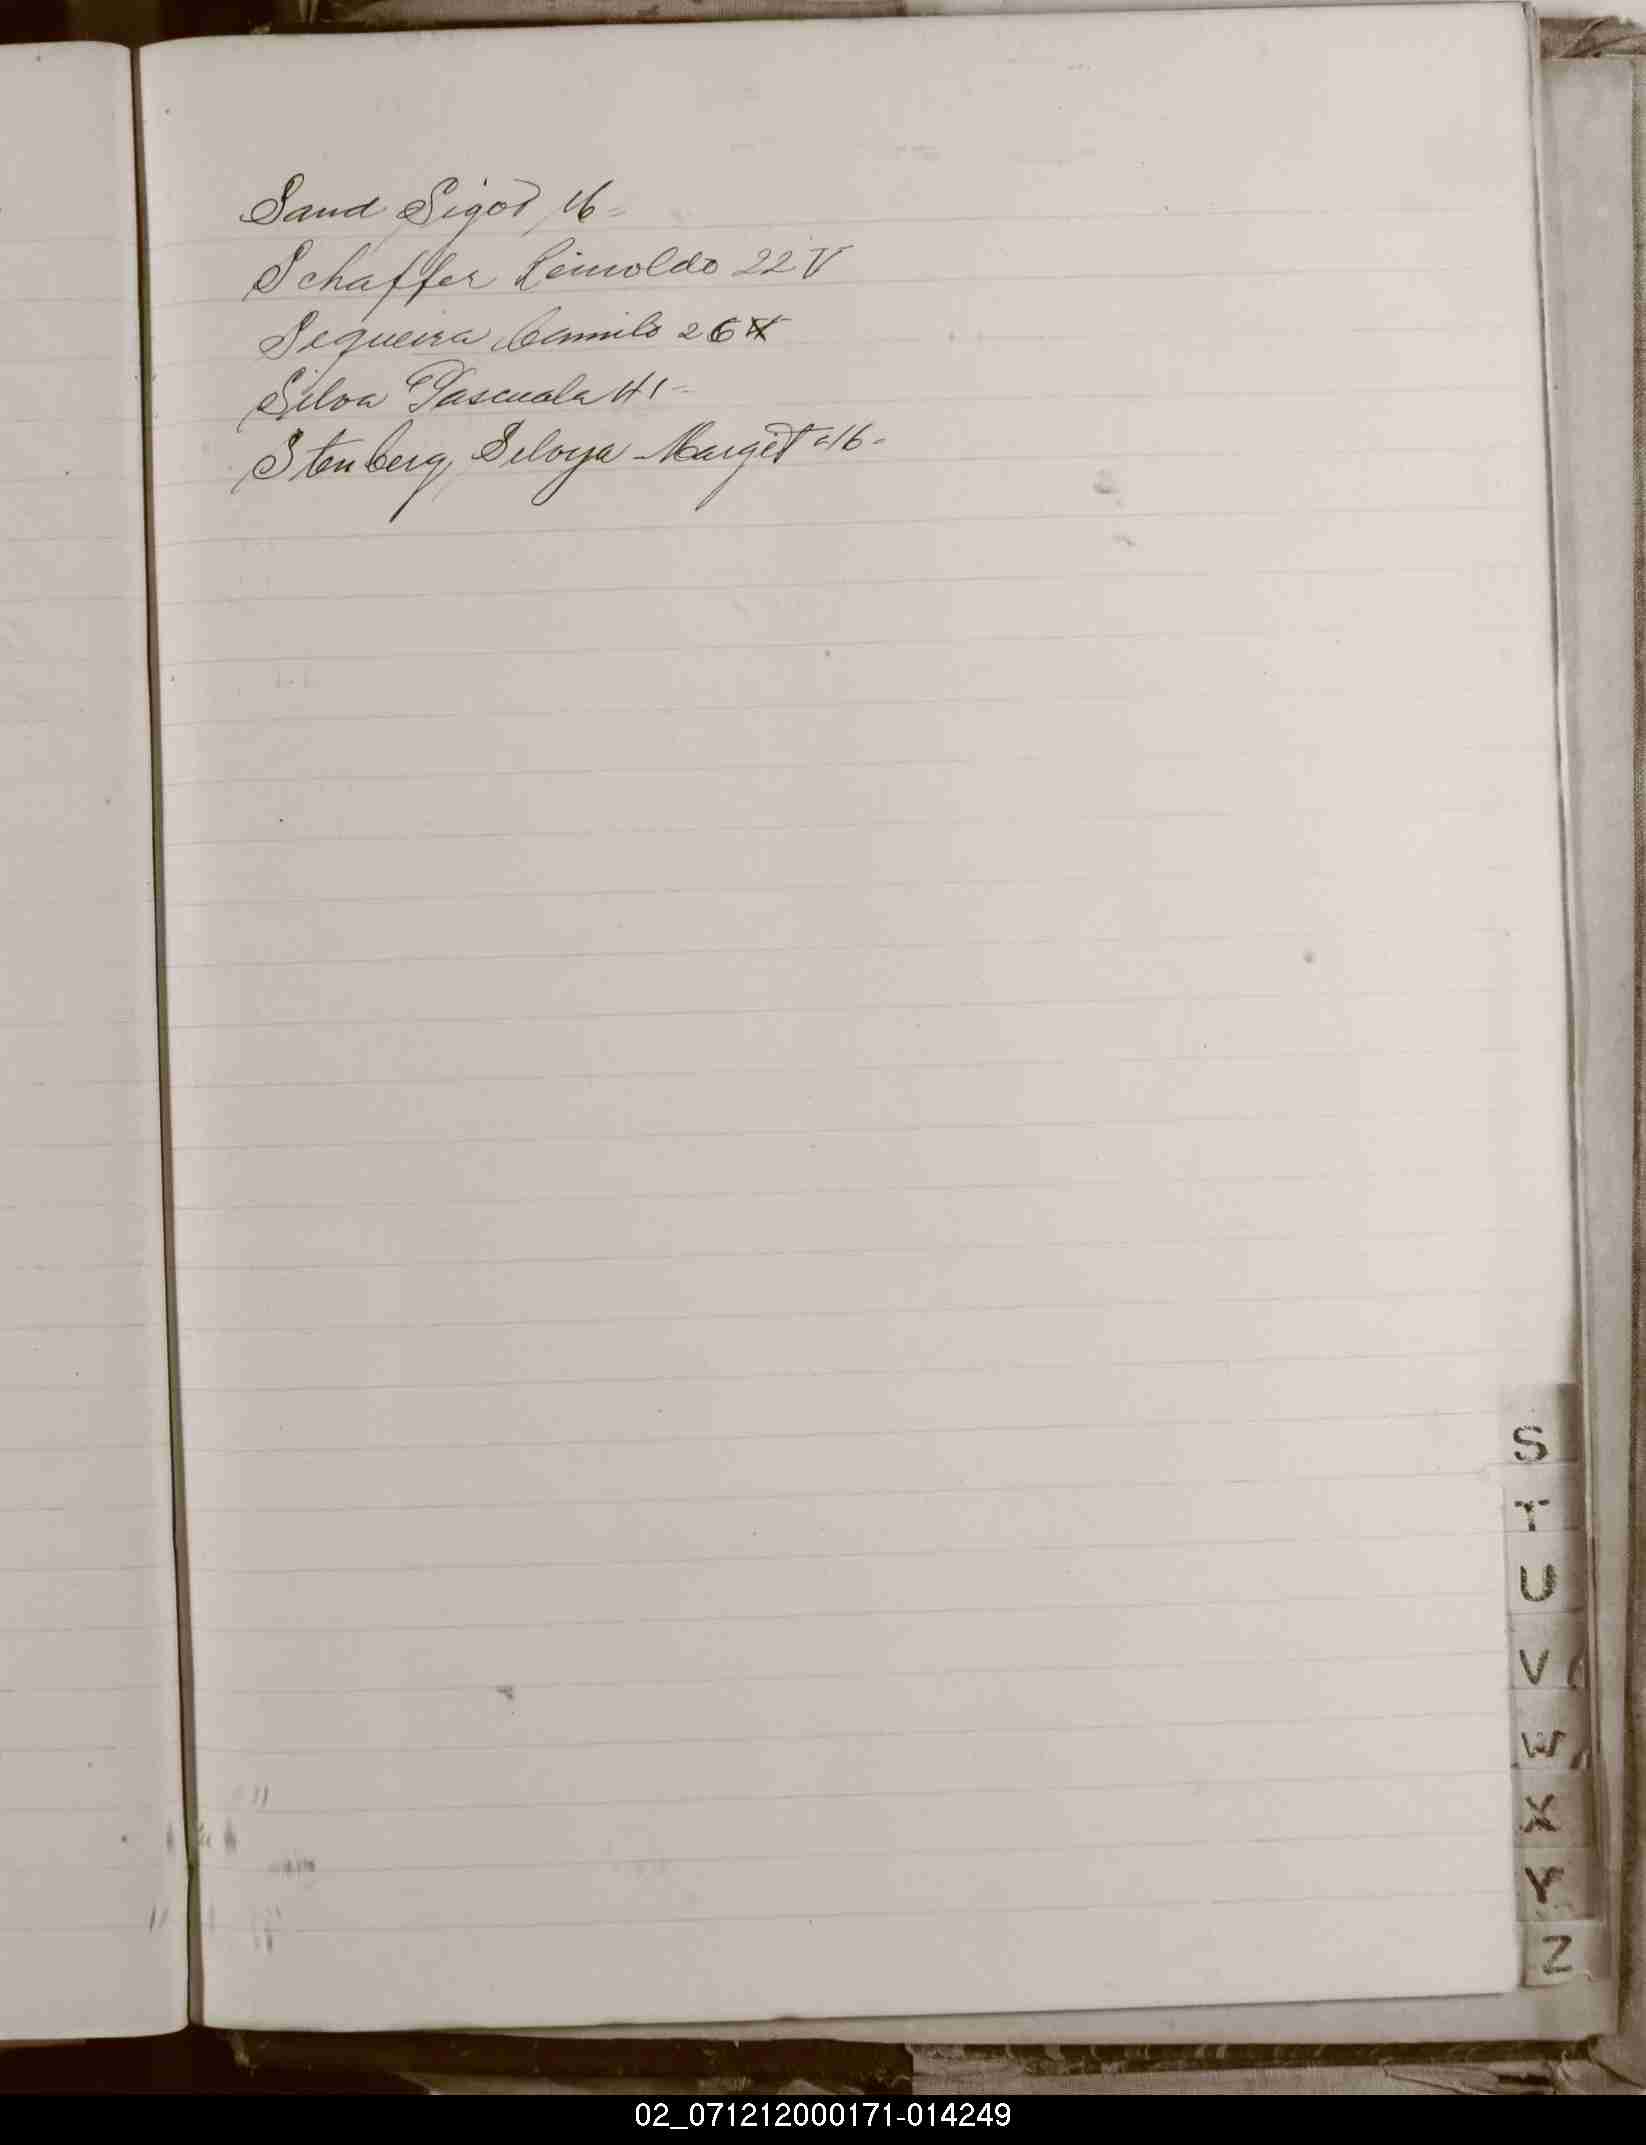 Sand Sigod 16-
Schaffer Reinoldo 22 V
Sequeira Camilo 26
Silva Pascuala 41-
Stenberg, Selvya Margit 16-
S
T
U
V
W
X
Y
Z
02_071212000171-014249